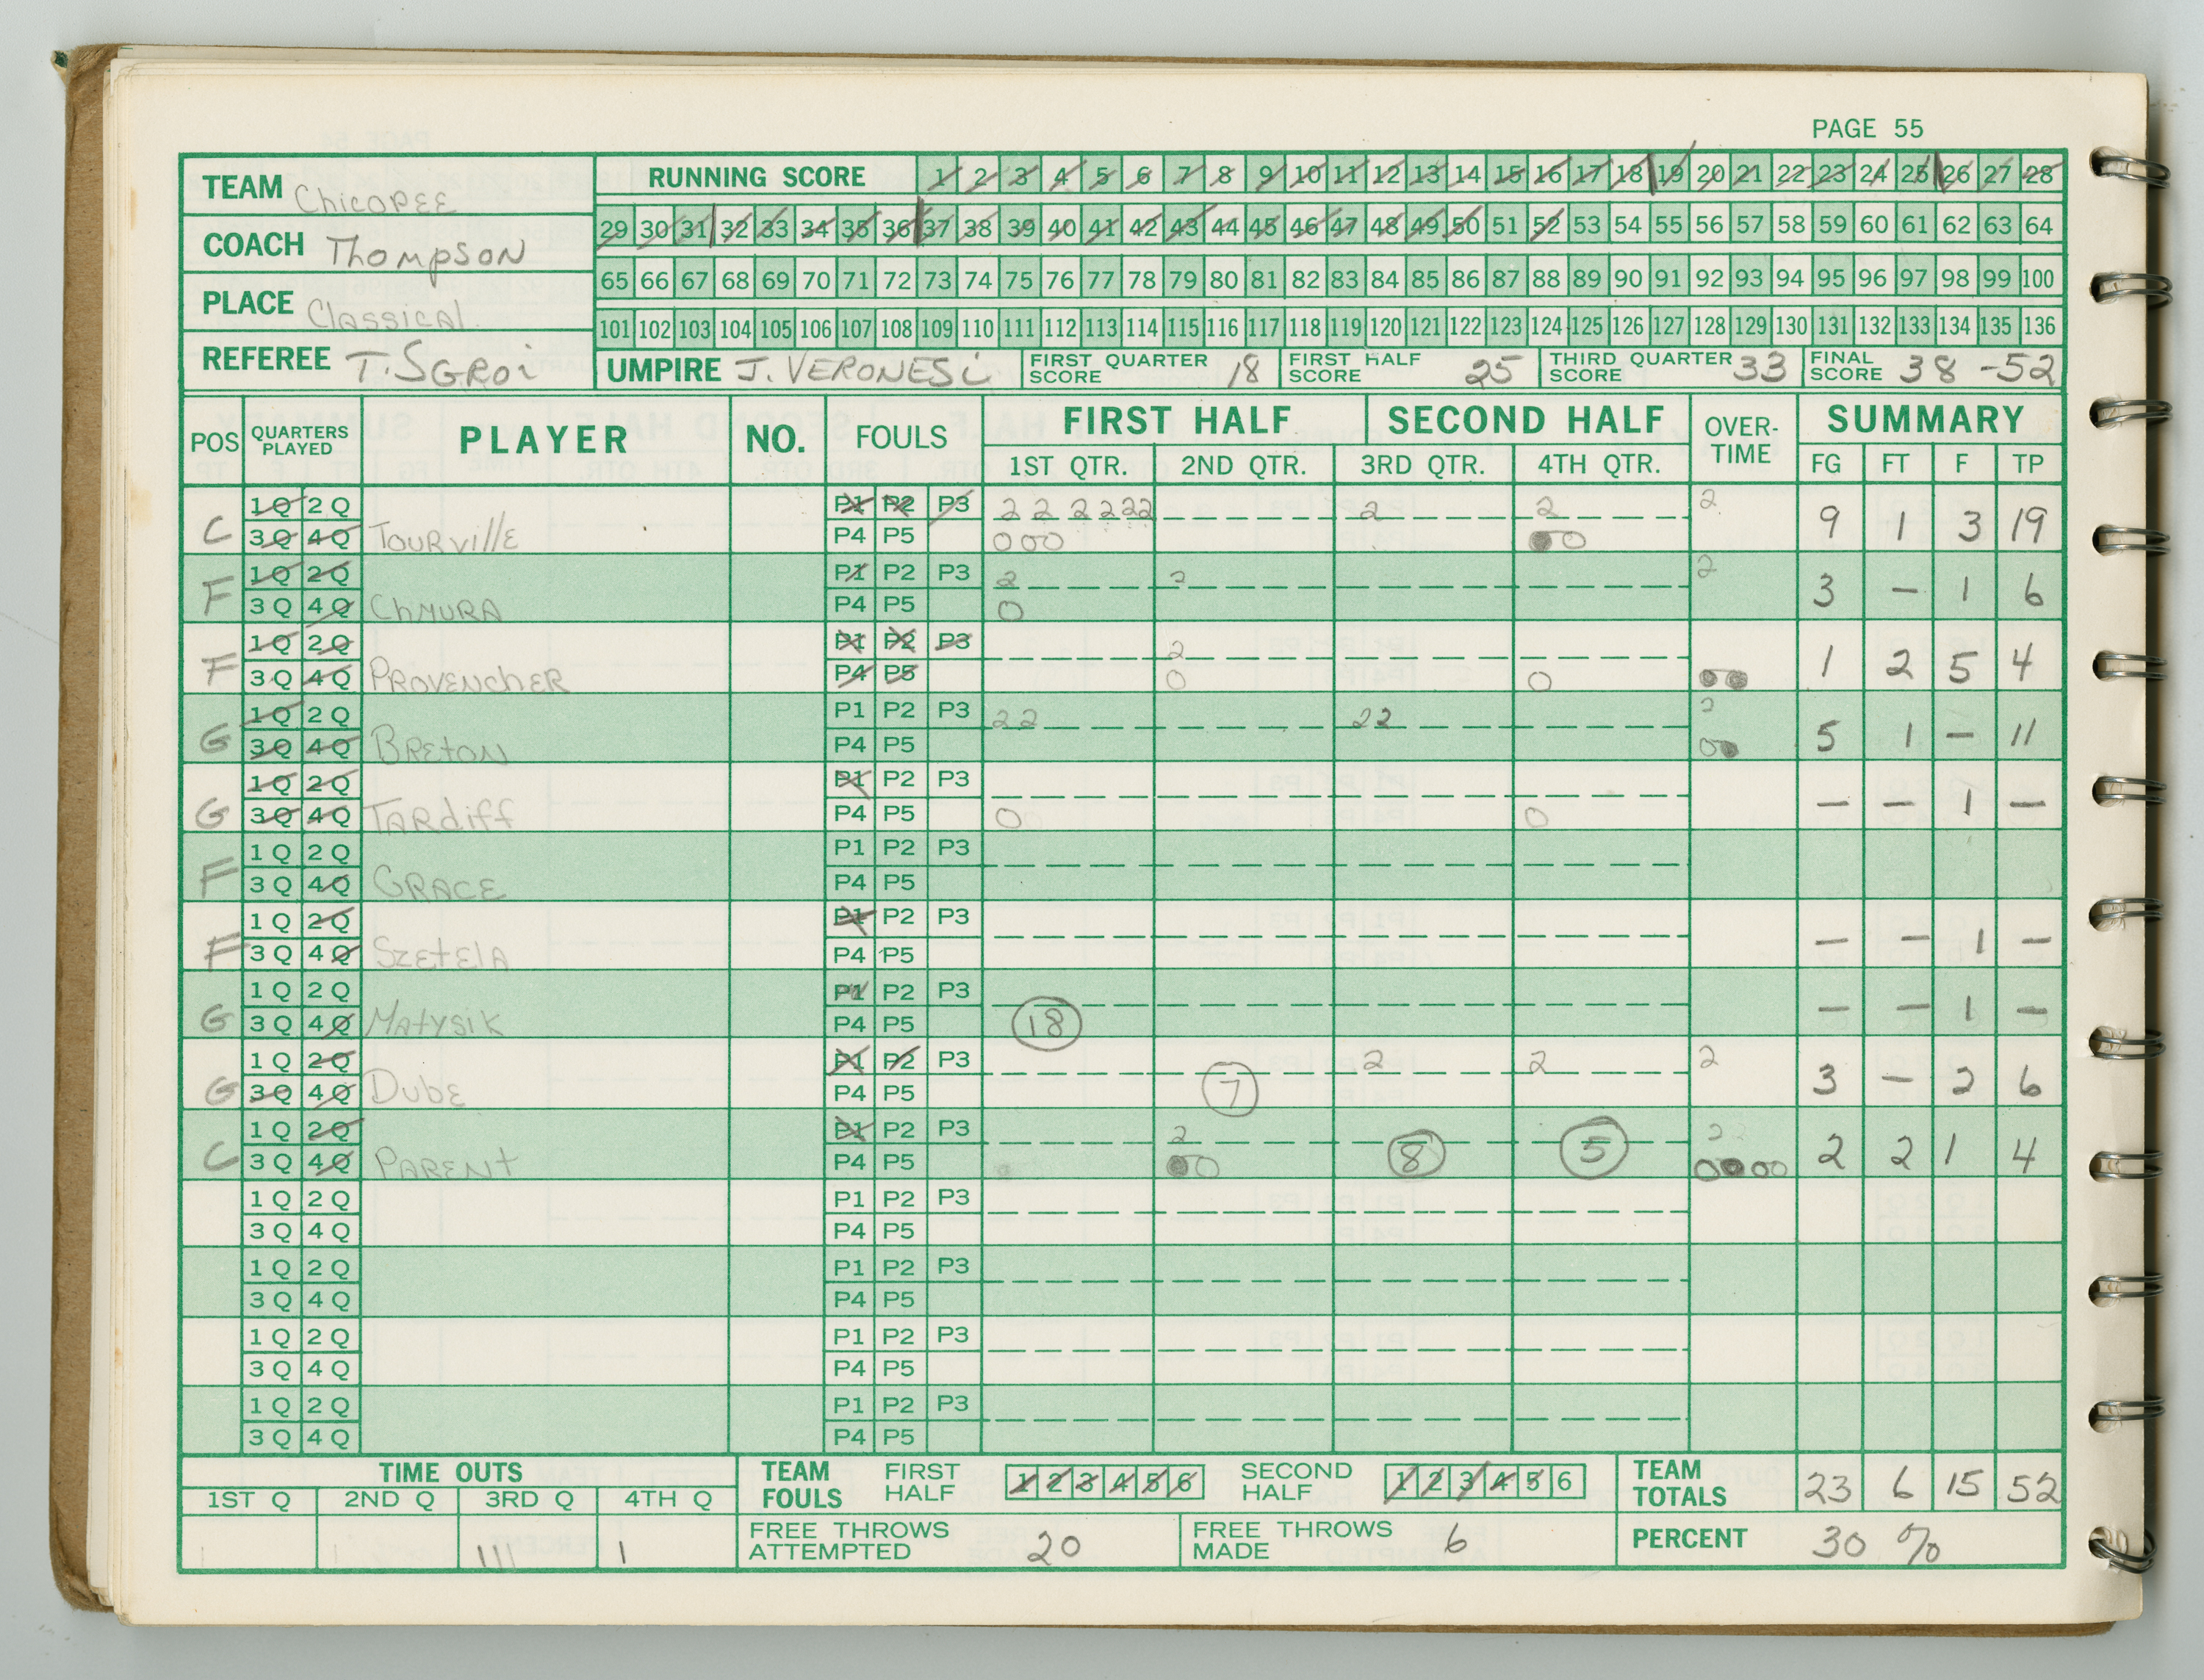 PAGE 55
TEAM Chicopee
RUNNING SCORE 1 2 3 4 5 6 7 8 9 10 11 12 13 14 15 16 17 18 19 20 21 22 23 24 25 26 27 28
29 30 31 32 33 34 35 36 37 38 39 40 41 42 43 44 45 46 47 48 49 50 51 52 53 54 55 56 57 58 59 60 61 62 63 64
COACH Thompson
65 66 67 68 69 70 71 72 73 74 75 76 77 78 79 80 81 82 83 84 85 86 87 88 89 90 91 92 93 94 95 96 97 98 99 100
PLACE Classical
101 102 103 104 105 106 107 108 109 110 111 112 113 114 115 116 117 118 119 120 121 122 123 124 125 126 127 128 129 130 131 132 133 134 135 136
REFEREE T. SGROi UMPIRE J. VERONESi FIRST QUARTER SCORE 18 FIRST HALF SCORE 25 THIRD QUARTER SCORE 33 FINAL SCORE 38 -52
POS QUARTERS PLAYED PLAYER NO. FOULS FIRST HALF SECOND HALF OVER-TIME SUMMARY
1ST QTR. 2ND QTR. 3RD QTR. 4TH QTR. FG FT F TP
C 1Q 2Q P1 P2 P3 2 2 2 2 2 2 2 2 2
3Q 4Q Tourville P4 P5 0 0 0 0 9 1 3 19
F 1Q 2Q P1 P2 P3 2 2 2
3Q 4Q Chmura P4 P5 0 3 — 1 6
F 1Q 2Q P1 P2 P3 2
3Q 4Q Provencher P4 P5 0 0 1 2 5 4
G 1Q 2Q P1 P2 P3 2 2 2 2 2
3Q 4Q Breton P4 P5 0 5 1 — 11
G 1Q 2Q P1 P2 P3
3Q 4Q Tardiff P4 P5 0 0 — — 1 —
F 1Q 2Q P1 P2 P3
3Q 4Q Grace P4 P5
F 1Q 2Q P1 P2 P3
3Q 4Q Szetela P4 P5 — — 1 —
G 1Q 2Q P1 P2 P3
3Q 4Q Matysik P4 P5 18 — — 1 —
G 1Q 2Q P1 P2 P3 2 2 2
3Q 4Q Dube P4 P5 7 3 — 2 6
C 1Q 2Q P1 P2 P3 2 8 5 2
3Q 4Q Parent P4 P5 0 0 0 0 2 2 1 4
1Q 2Q P1 P2 P3
3Q 4Q P4 P5
1Q 2Q P1 P2 P3
3Q 4Q P4 P5
1Q 2Q P1 P2 P3
3Q 4Q P4 P5
1Q 2Q P1 P2 P3
3Q 4Q P4 P5
TIME OUTS TEAM FOULS FIRST HALF 1 2 3 4 5 6 SECOND HALF 1 2 3 4 5 6 TEAM TOTALS 23 6 15 52
1ST Q 2ND Q 3RD Q 4TH Q
1 1 111 1 FREE THROWS ATTEMPTED 20 FREE THROWS MADE 6 PERCENT 30 %